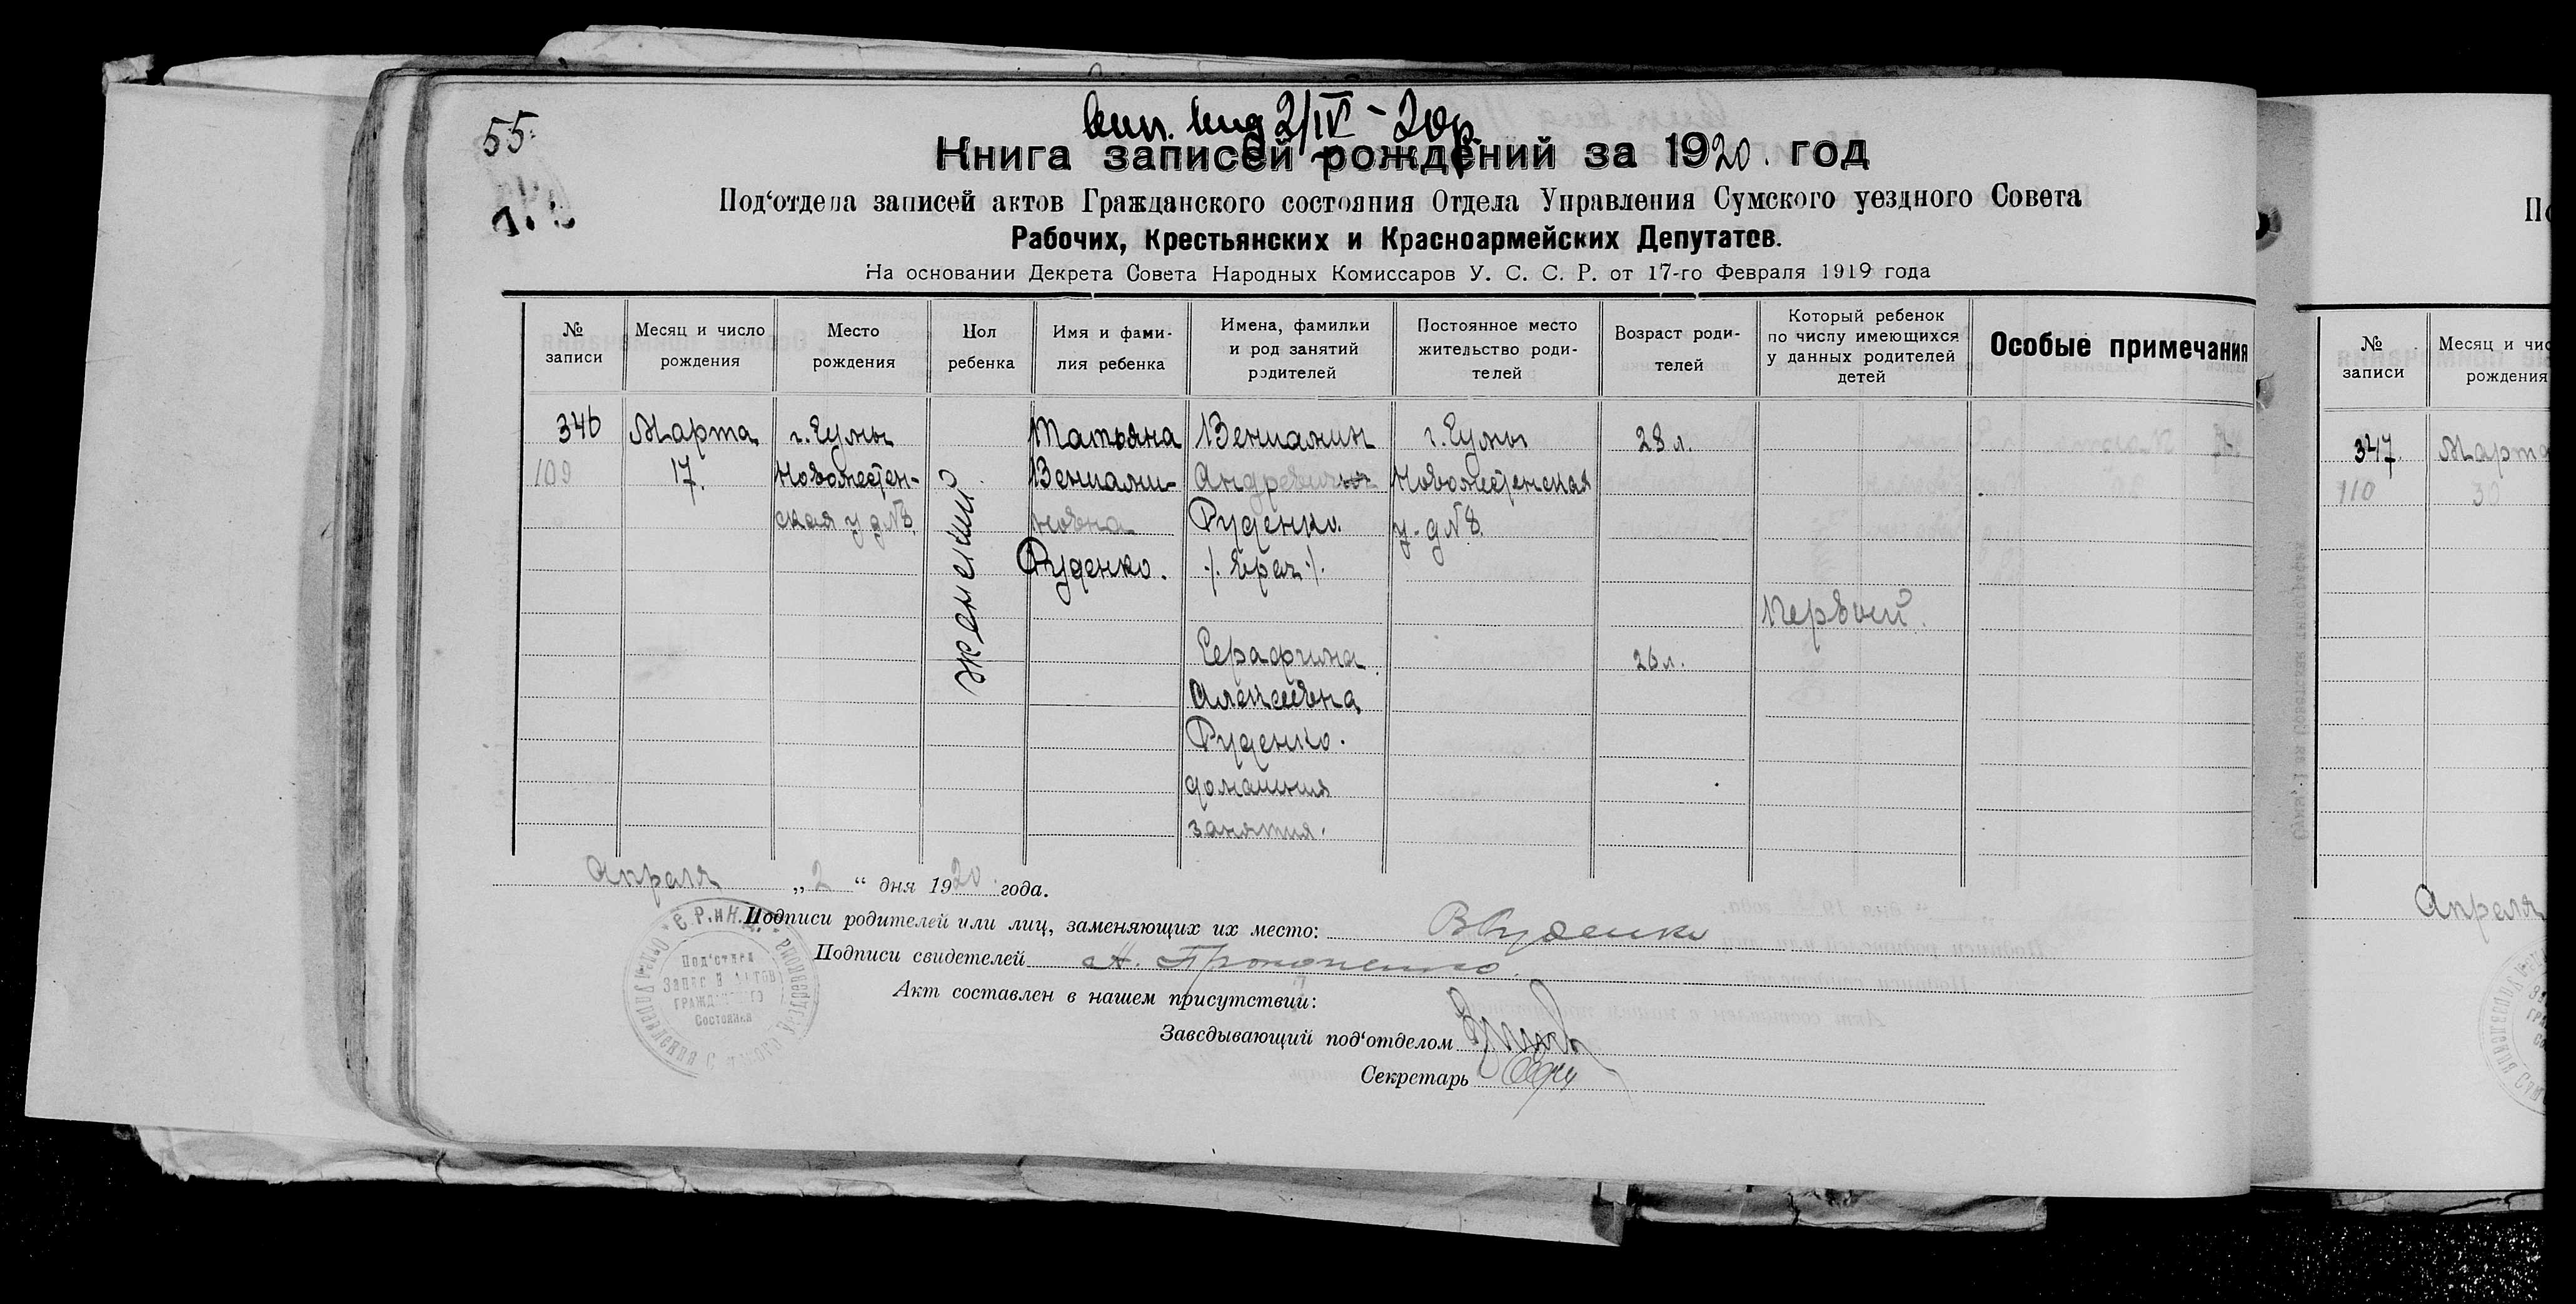 55.
2/IV - 20 р.
Книга записей рождений за 1920. год
Под‘отдела записей актов Гражданского состояния Отдела Управления Сумского уездного Совета
Рабочих, Крестьянских и Красноармейских Депутатов.
На основании Декрета Совета Народных Комиссаров У. С. С. Р. от 17-го Февраля 1919 года
№ записи
Месяц и число рождения
Место рождения
Пол ребенка
Имя и фами-
лия ребенка
Имена, фамилии
и род занятий
родителей
Постоянное место
жительство роди-
телей
Возраст роди-
телей
Который ребенок
по числу имеющихся
у данных родителей
детей
Особые примечания
346
109
Марта
17.
г. Сумы
Новоместен-
ская у д №8.
женский
Татьяна
Вениами-
новна
Руденко.
Вениамин
Андреевич
Руденко.
/. Врач ./.
Серафима
Алексеевна
Руденко.
домашния
занятия.
г. Сумы
Новоместенская
у. д №8.
28 л.
26 л.
Первый.
Апреля „ 2 “ дня 1920 года.
Подписи родителей или лиц, заменяющих их место: ВРуденко
Подписи свидетелей А. Прокопенко.
Акт составлен в нашем присутствии:
Заведывающий под‘отделом
Секретарь
С. Р. и К. Д.
Под‘отдел
Записи Актов
Гражданского
Состояния
№
записи
Месяц и чис
рождения
347.
110
Марта
30
Апреля